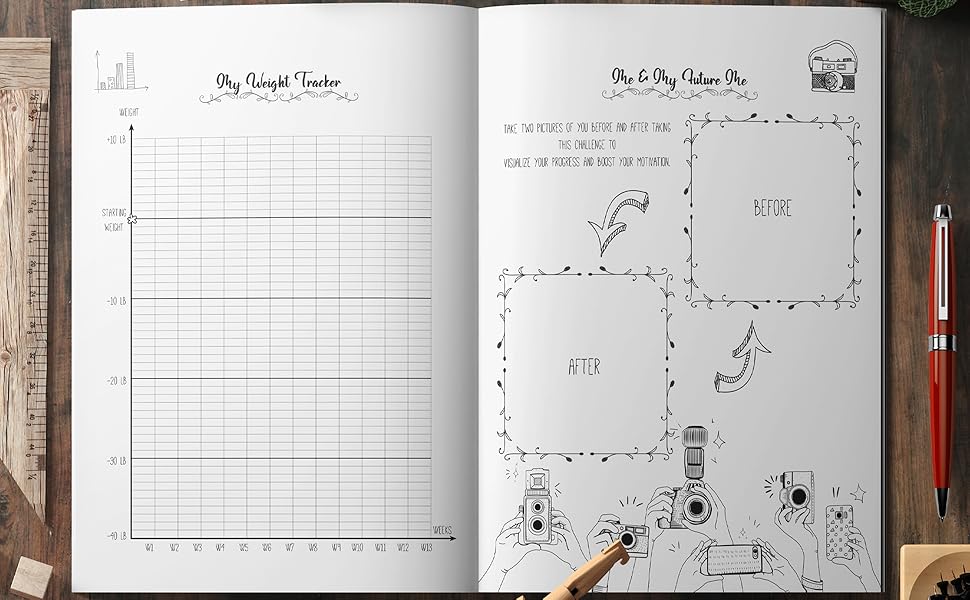 My Weight Tracker
WEIGHT
+10 LB
STARTING
WEIGHT
-10 LB
-20 LB
-30 LB
-40 LB
WEEKS
W1 W2 W3 W4 W5 W6 W7 W8 W9 W10 W11 W12 W13
Me & My Future Me
TAKE TWO PICTURES OF YOU BEFORE AND AFTER TAKING
THIS CHALLENGE TO
VISUALIZE YOUR PROGRESS AND BOOST YOUR MOTIVATION.
BEFORE
AFTER